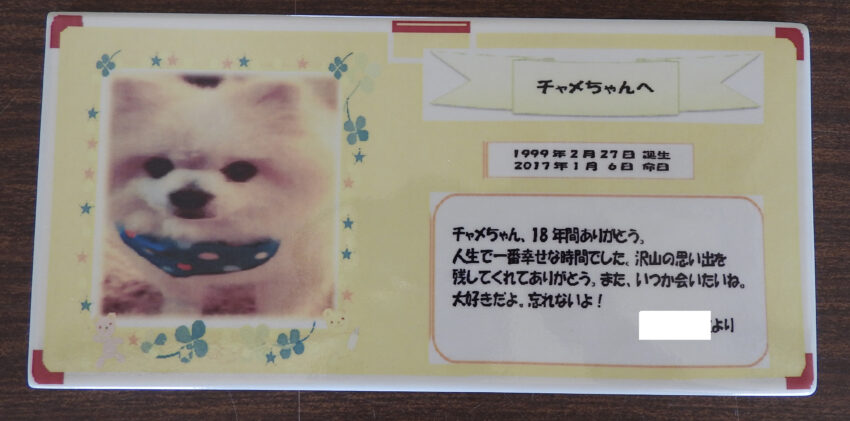 チャメちゃんへ
1999年2月27日 誕生
2017年1月 6日 命日
チャメちゃん、18年間ありがとう。
人生で一番幸せな時間でした。沢山の思い出を
残してくれてありがとう。また、いつか会いたいね。
大好きだよ。忘れないよ！
より